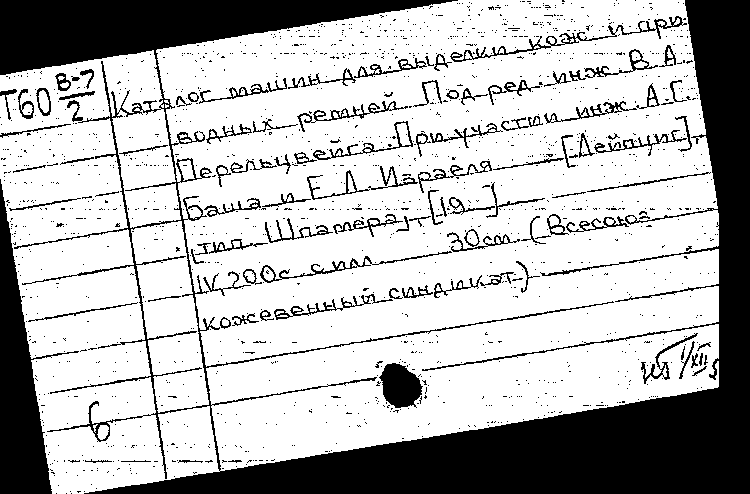 Т60 В-7/2
Каталог машин для выделки кож и при-
водных ремней Под ред. инж. В. А.
Перельцвейга. При участии инж. А. Г.
Баша и Е. Л. Израеля [Лейпциг],
тип. Шпамера, [19 ].
IV, 200с. с илл. 30см. (Всесоюз.
кожевенный синдикат)
6